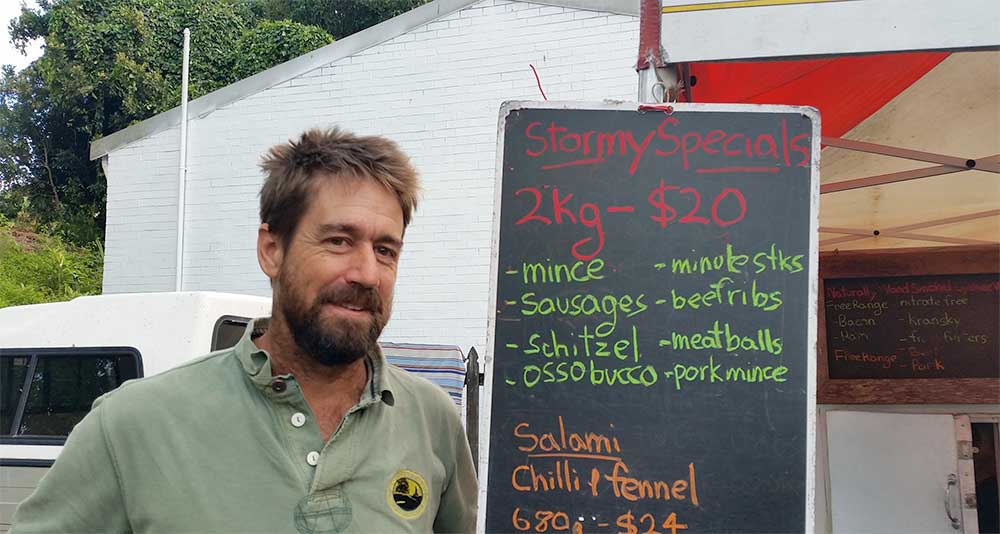 Stormy Specials
2kg - $20
- mince - minute stks
- Sausages - beef ribs
- Schitzel - meatballs
- osso bucco - pork mince
Salami
Chilli & fennel
680g - $24
Naturally Wood Smoked
Free Range nitrate free
- Bacon - Kransky
- Ham
Free Range
- Pork